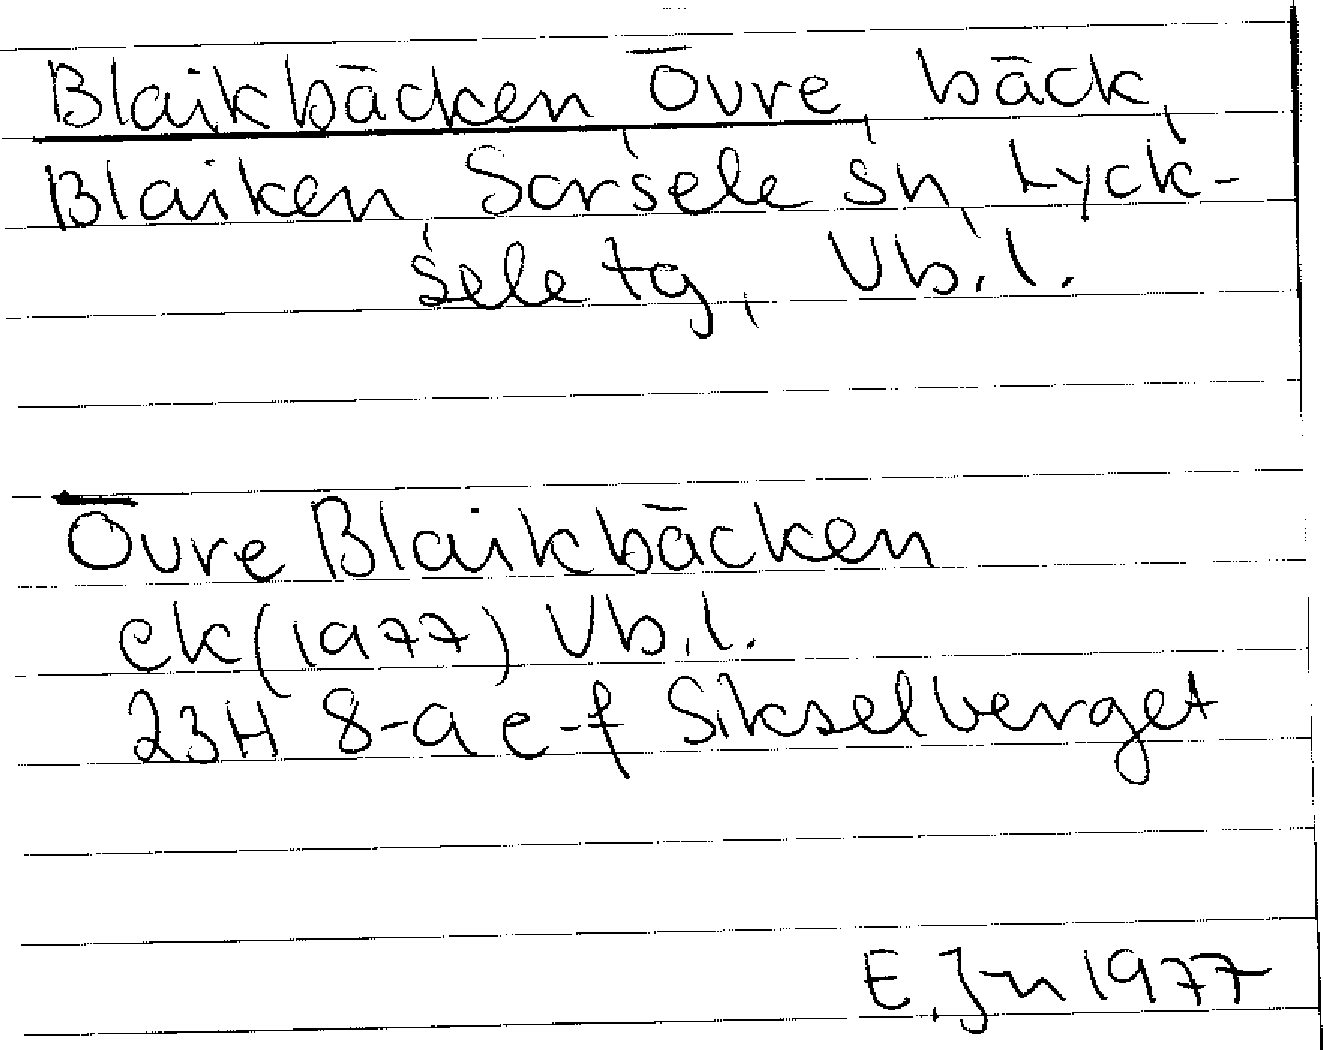 Blaikbäcken Övre, bäck,
Blaiken, Sorsele sn, Lyck-
sele tg, Vb. l.
Övre Blaikbäcken
ek (1977) Vb. l.
23H 8-a e-f Sikselberget
E. Jn 1977